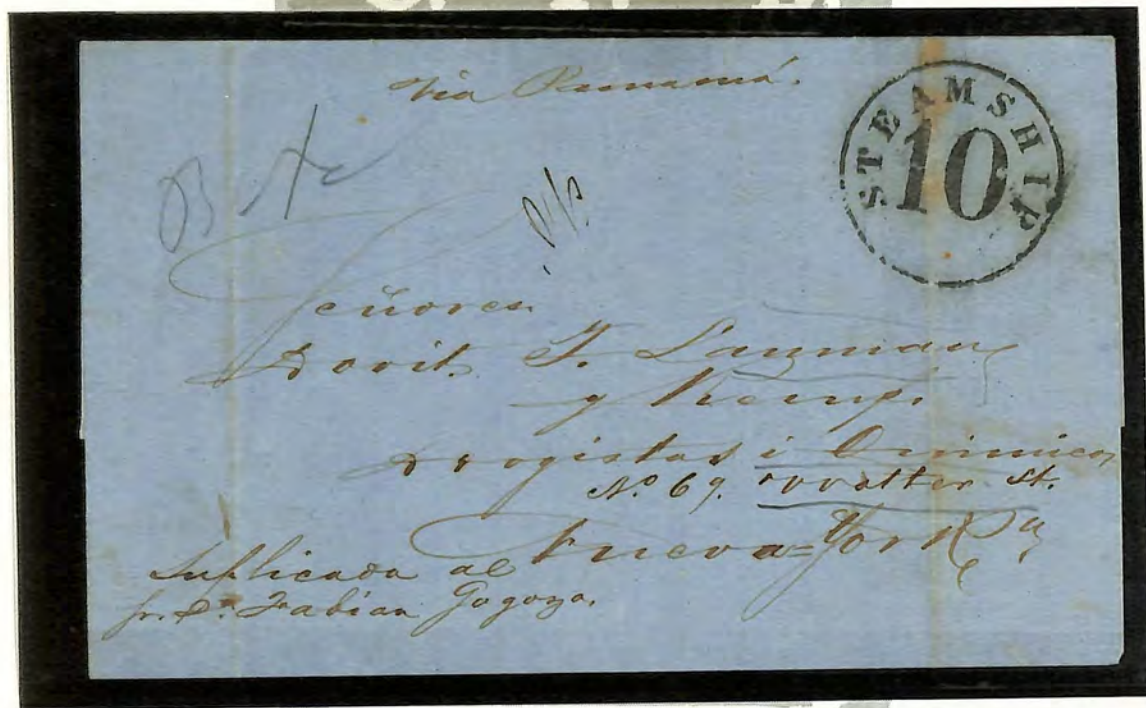 via Panamá.
STEAMSHIP
10
Señores
David. T. Lanman
y Kemp.
Drogistas i Quimicos
Nº 69. Watter St.
Nueva=York
Suplicada al
Sr. Dn. Fabian Gogoya.